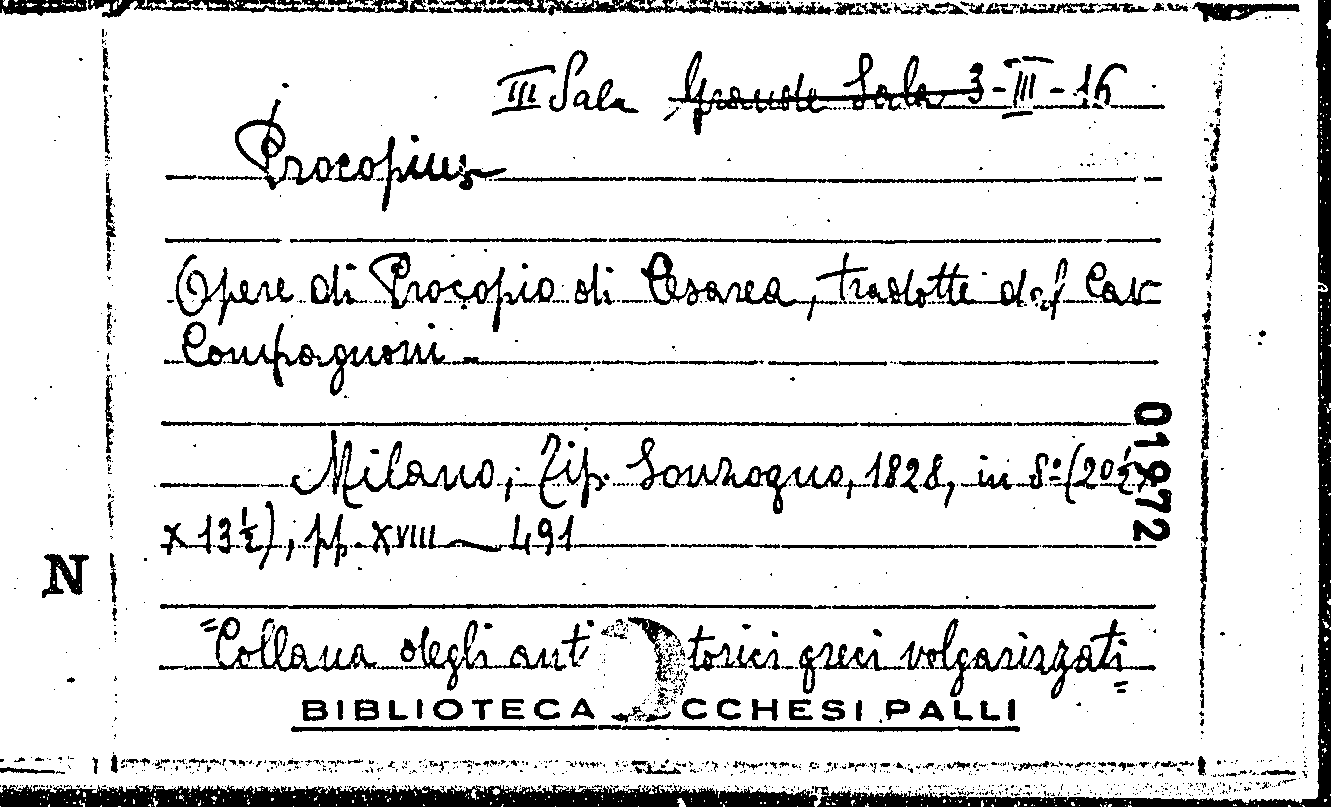 III Sala Grande Sala 3-III-16
Procopius
Opere di Procopio di Cesarea, tradotte dal Cav
Compagnoni -
Milano, Tip. Sonzogno, 1828, in 8º (20½ x
x 13½), pp. XVIII ~ 491
01972
N
"Collana degli ant torici greci volgarizzati"
BIBLIOTECA CCHESI PALLI